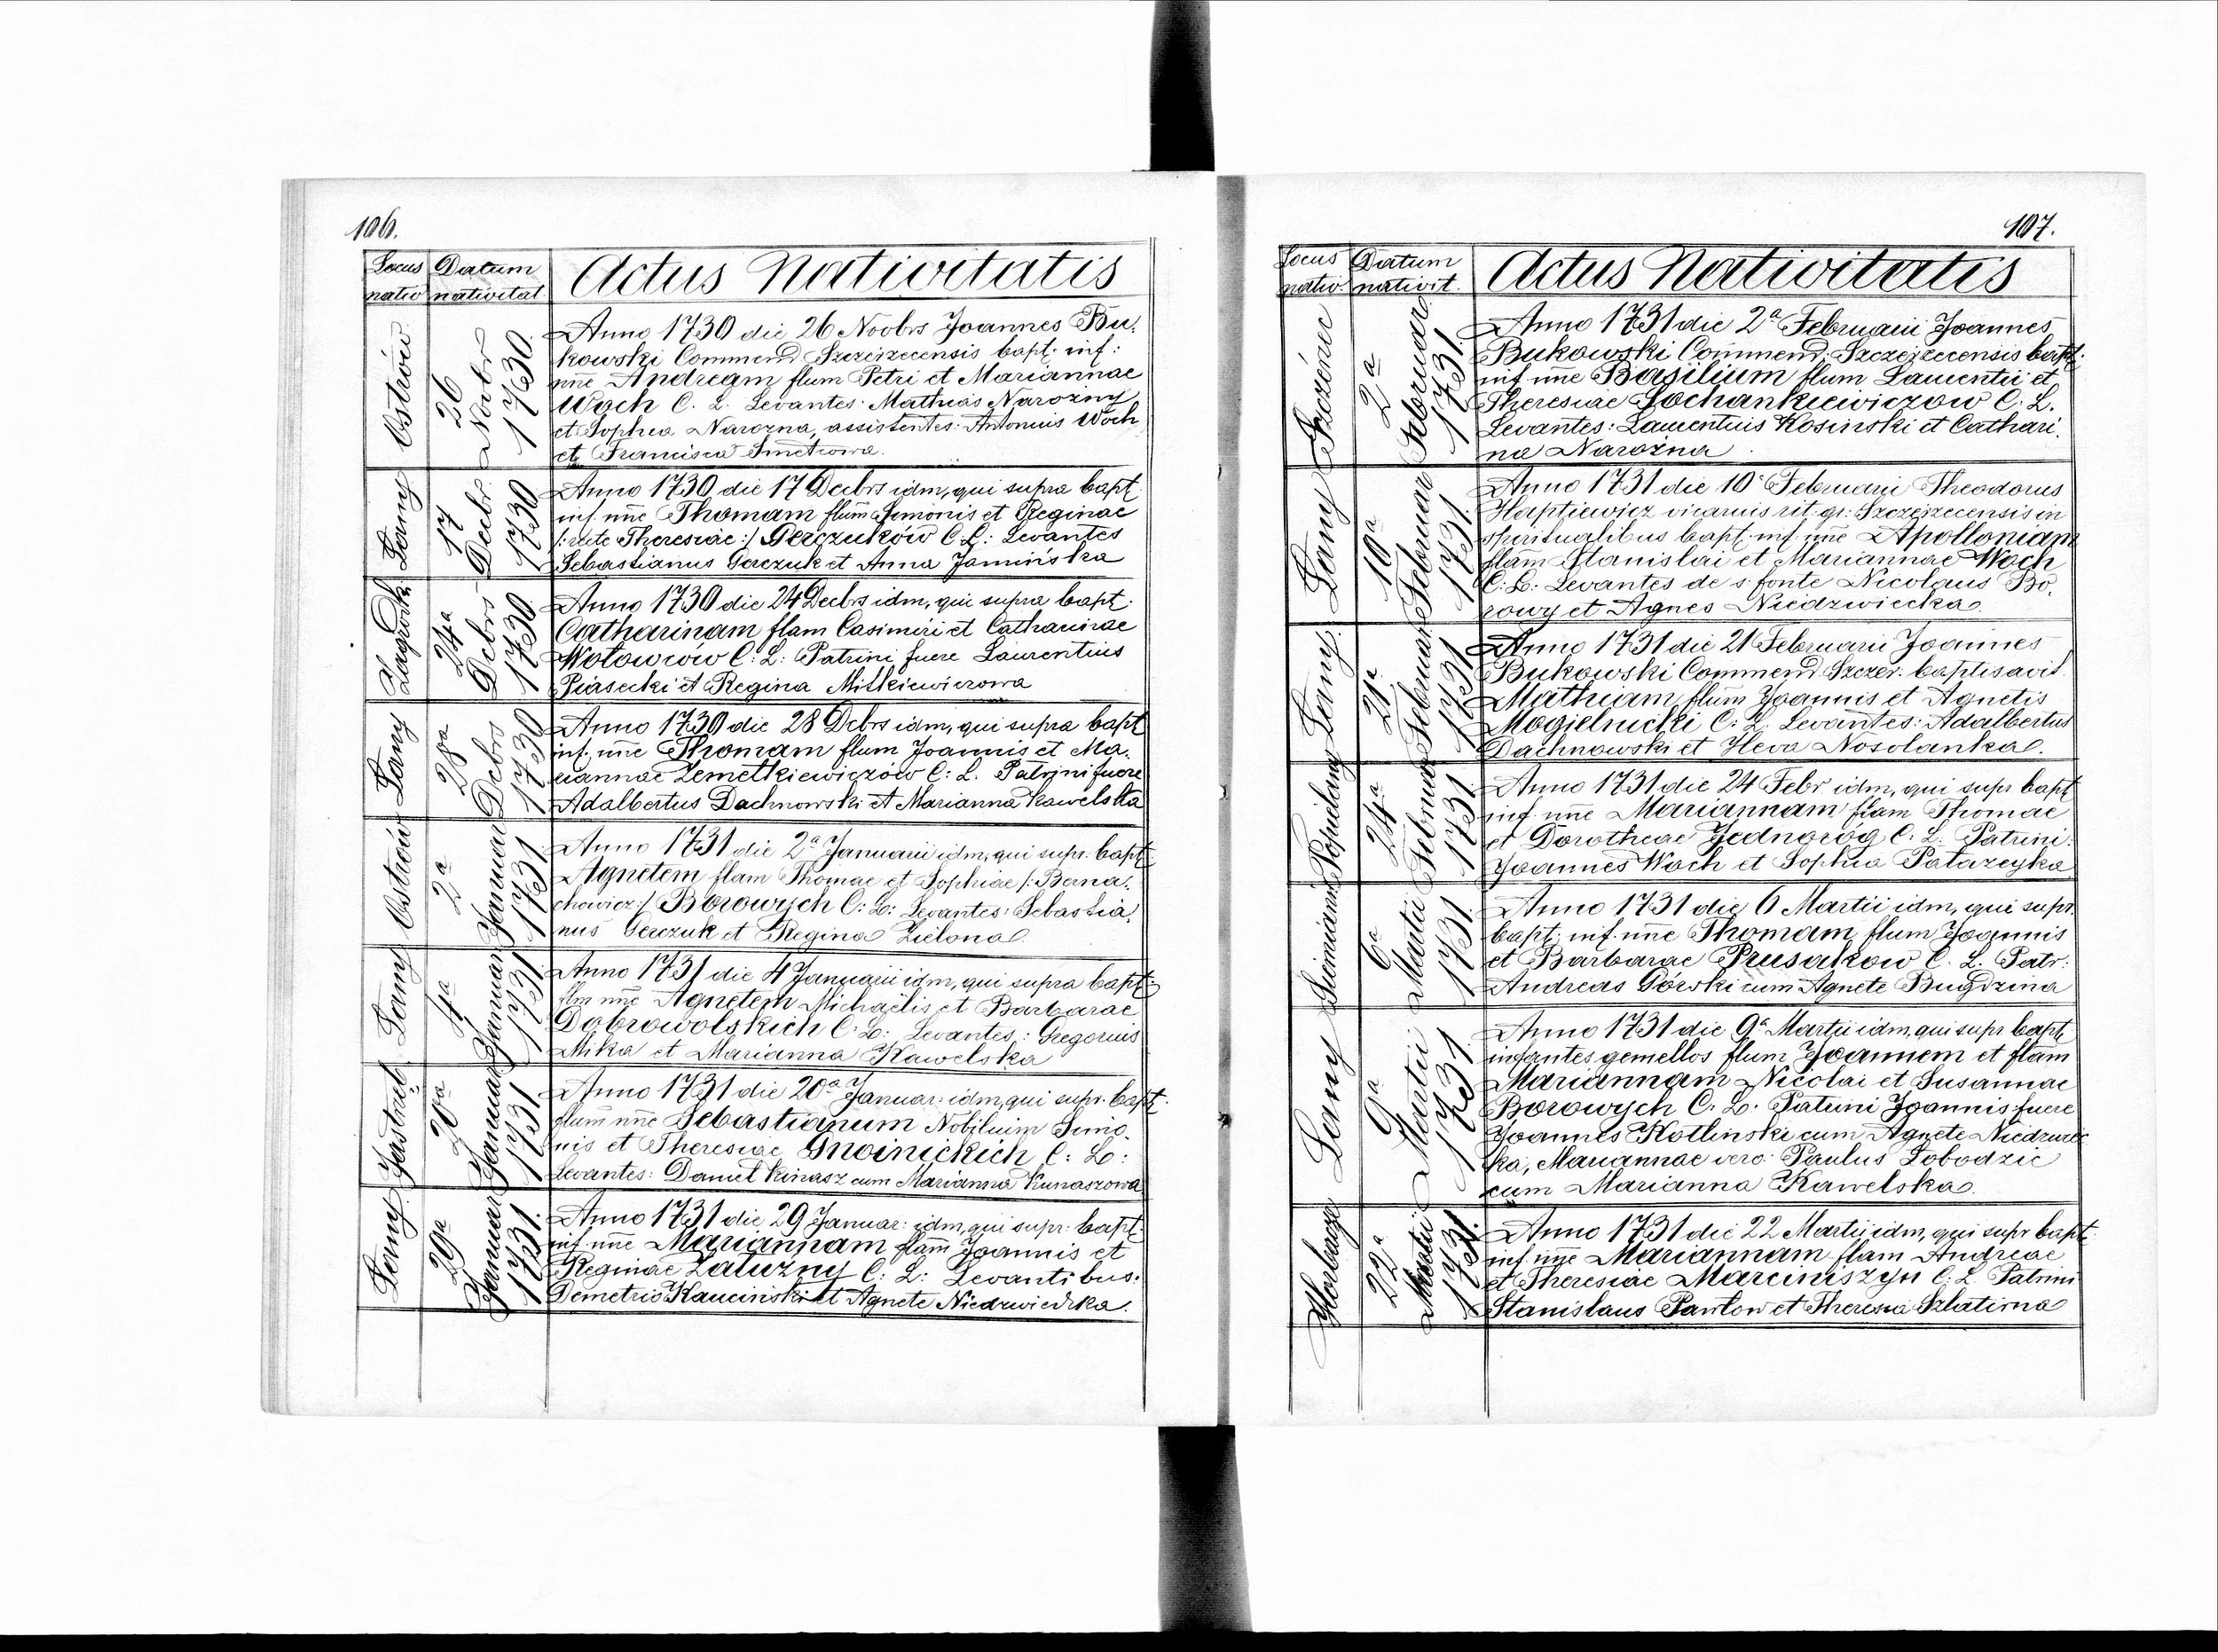 106.
Locus nativ
Datum nativitat
Actus Nativitatis
Ostrów
26 Novbr 1730.
Anno 1730 die 26 Novbrs Joannes Bu-
kowski Commend. Szczerzecensis bapt. inf:
nne Andream flum Petri et Mariannae
Woch C. L. Levantes: Mathias Narozny
et Sophia Narozna, assistentes: Antonius Woch
et Francisca Smetrowa.
Łany
17 Decbr 1730
Anno 1730 die 17 Decbrs idm, qui supra bapt.
inf. nne Thomam flum Simonis et Reginae
/: recte Theresiae :/ Gerczuków C. L: Levantes
Sebastianus Gerczuk et Anna Jamińska
Zagródki
24a Decbrs 1730
Anno 1730 die 24 Decbrs idm, qui supra bapt:
Catharinam flam Casimiri et Catharinae
Wołowców C: L: Patrini fuere Laurentius
Piasecki et Regina Mitkiewiczowa
Łany
28a Debrs 1730
Anno 1730 die 28 Debrs idm, qui supra bapt
inf. nne Thomam flum Joannis et Ma-
riannae Zemełkiewiczów C: L. Patrini fuere
Adalbertus Dachnowski et Marianna Kawelska
Ostrów
2a Januar 1731
Anno 1731 die 2a Januarii idm, qui supr. bapt
Agnetem flam Thomae et Sophiae /: Berna-
chowicz :/ Borowych C: L: Levantes: Sebastia-
nus Gerczuk et Regina Zielona
Łany
4a Januar 1731
Anno 1731 die 4 Januarii idm, qui supra bapt.
flm nne Agnetem Michaëlis et Barbarae
Dobrowolskich C. L: Levantes: Gregorius
Mika et Marianna Kawelska
Jastrzęb.
20a Januar 1731
Anno 1731 die 20a Januar: idm, qui supr. bapt.
flum nne Sebastianum Nobilium Simo-
nis et Theresiae Gnoinickich C: L:
Levantes: Daniel Kunasz cum Marianna Kunaszowa
Łany
29a Januar 1731.
Anno 1731 die 29 Januar: idm, qui supr: bapt:
inf. nne Mariannam flam Joannis et
Reginae Załuzny C: L: Levantibus:
Demetrio Kaucinski et Agnete Niedzwiedzka.
107.
Locus nativ.
Datum nativit.
Actus Nativitatis
Szczérec
2a Februar 1731.
Anno 1731 die 2a Februarii Joannes
Bukowski Commend: Szczerzecensis bapt.
inf. nne Basilium flum Laurentii et
Theresiae Sochankiewiczow C: L.
Levantes: Laurentius Kosinski et Cathari-
na Narożna
Łany
10a Februar 1731.
Anno 1731 die 10a Februarii Theodorus
Haptiewicz vicarius rit: gr: Szczerzecensis in
spiritualibus bapt: inf. nne Apolloniam
flam Stanislai et Mariannae Woch
C: L: Levantes de s. fonte Nicolaus Bo-
rowy et Agnes Niedzwiecka
Łany.
21a Februar 1731
Anno 1731 die 21 Februarii Joannes
Bukowski Commend. Szczer. baptisavit
Mathiam flum Joannis et Agnetis
Mogielnicki C: L. Levantes: Adalbertus
Dachnowski et Heva Nosolanka.
Popielany
24a Februar 1731
Anno 1731 die 24 Febr idm, qui supr bapt
inf nne Mariannam flam Thomae
et Dorotheae Jednoróg C. L. Patrini:
Joannes Woch et Sophia Patarzyka
Siemian
6a Martii 1731.
Anno 1731 die 6 Martii idm, qui supr.
bapt: inf. nne Thomam flum Joannis
et Barbarae Prusakow C. L. Patr:
Andreas Górski cum Agnete Bugdzina
Łany
9a Martii 1731
Anno 1731 die 9a Martii idm, qui supr bapt.
infantes gemellos flum Joannem et flam
Mariannam Nicolai et Susannae
Borowych C. L. Patrini Joannis fuere
Joannes Kotlinski cum Agnete Niedzwiec-
ka, Mariannae vero: Paulus Łobodzic
cum Marianna Kawelska.
Horbacze
22a Martii 1731.
Anno 1731 die 22 Martii idm, qui supr bapt
inf nne Mariannam flam Andreae
et Theresiae Marciniszyn C. L. Patrini
Stanislaus Pawłow et Theresia Szlatirna